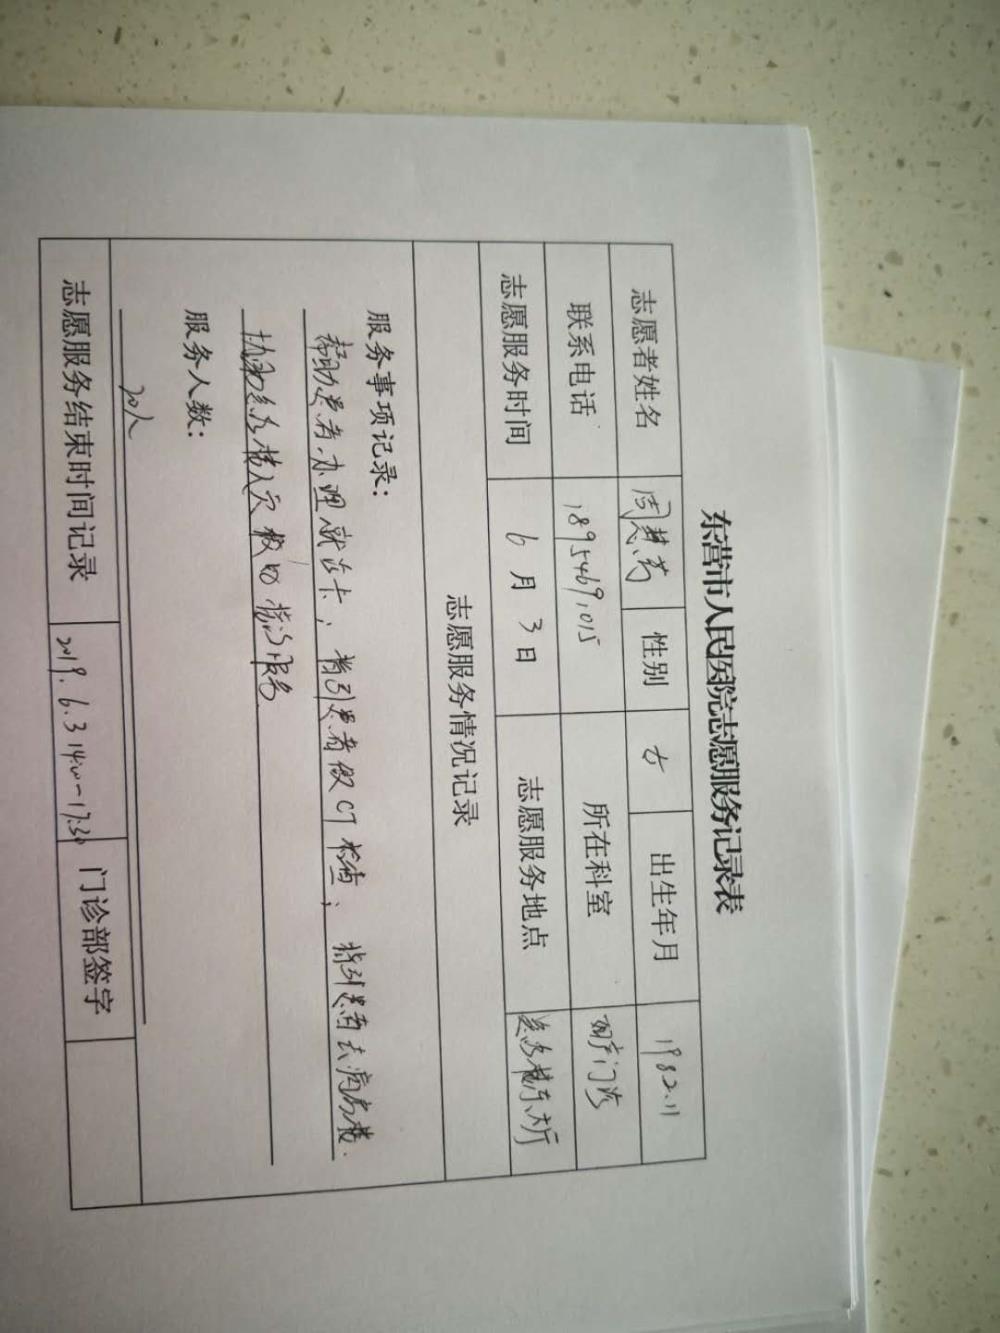 东营市人民医院志愿服务记录表
志愿者姓名 周慧芳 性别 女 出生年月 1982.11
联系电话 18954691015 所在科室 门诊
志愿服务时间 6月3日 志愿服务地点 大厅
志愿服务情况记录
服务事项记录：
帮助患者办理就诊卡；指引患者做CT检查；指引患者去病房楼.
服务人数：
20人
志愿服务结束时间记录 2019.6.3 14:00-17:30 门诊部签字